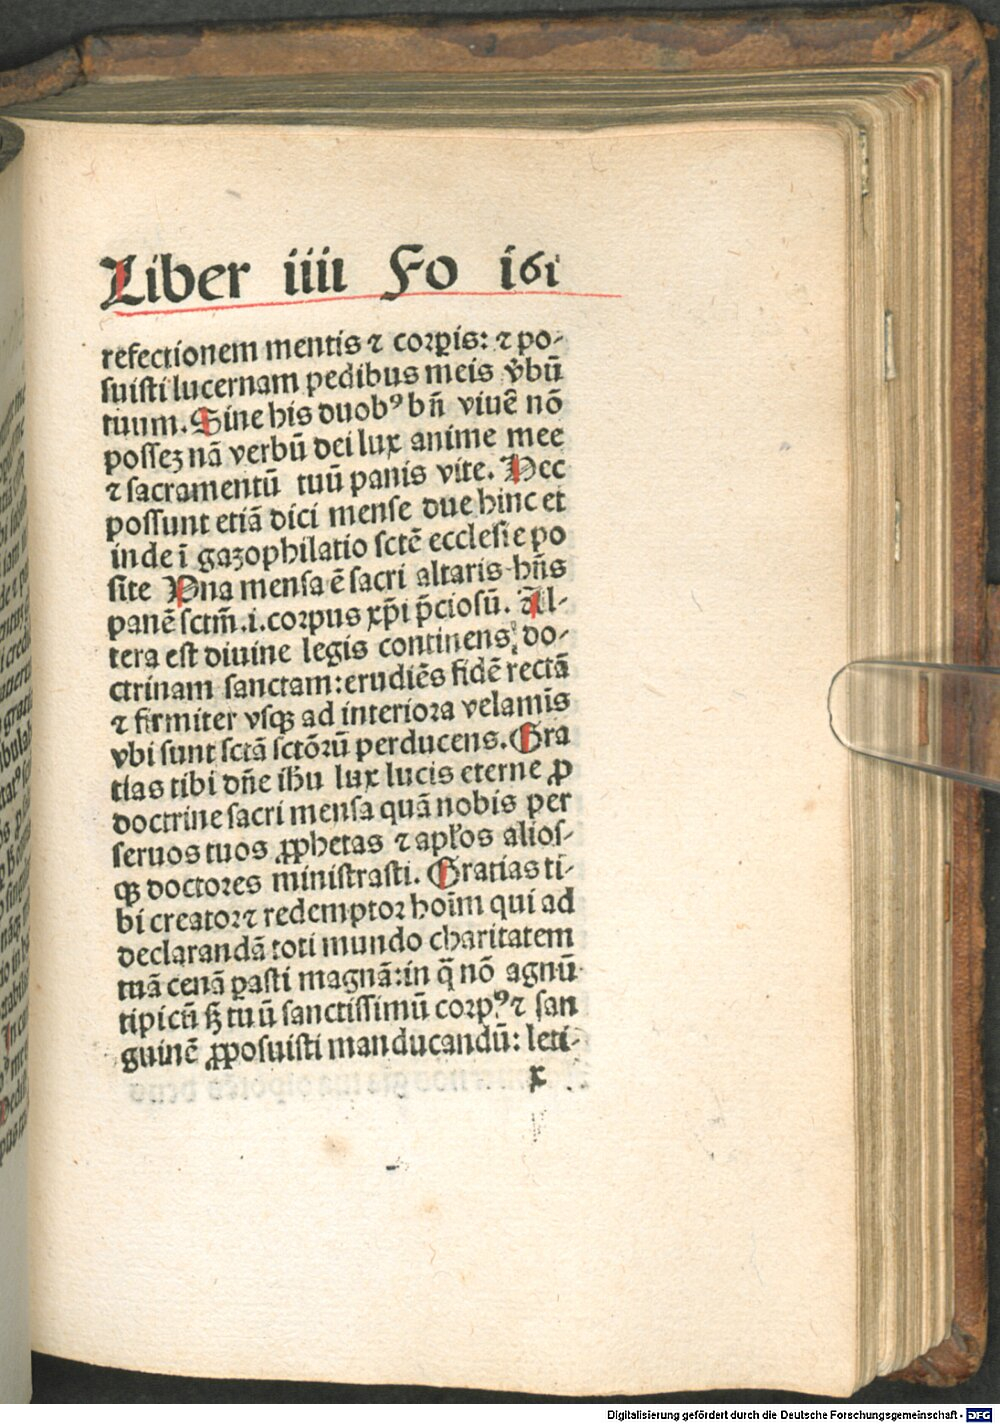 Liber iiii Fo i6i
refectionem mentis ⁊ corꝑis: ⁊ po-
suisti lucernam pedibus meis v̾bū
tuum. Sine his duobꝰ bn̄ viuē nō
possez nā verbū dei lux anime mee
⁊ sacramentū tuū panis vite. Nec
possunt etiā dici mense due hinc et
inde ī gazophilatio sctē ecclesie po
site Una mensa ē sacri altaris hn̄s
panē sctm̄.i.corpus xp̄i p̄ciosū. Al-
tera est diuine legis continens do-
ctrinam sanctam:erudiēs fidē rectā
⁊ firmiter vsqꝫ ad interiora velamīs
vbi sunt sctā sctōrū perducens. Gra
tias tibi dn̄e ih̄u lux lucis eterne ꝓ
doctrine sacri mensa quā nobis per
seruos tuos ꝓphetas ⁊ apl̄os alios-
qꝫ doctores ministrasti. Gratias ti-
bi creator ⁊ redemptor hoīm qui ad
declarandā toti mundo charitatem
tuā cenā ꝑasti magnā:in q̄ nō agnū
tipicū sꝫ tuū sanctissimū corpꝰ ⁊ san
guinē ꝓposuisti manducandū: leti-
x
Digitalisierung gefördert durch die Deutsche Forschungsgemeinschaft - DFG